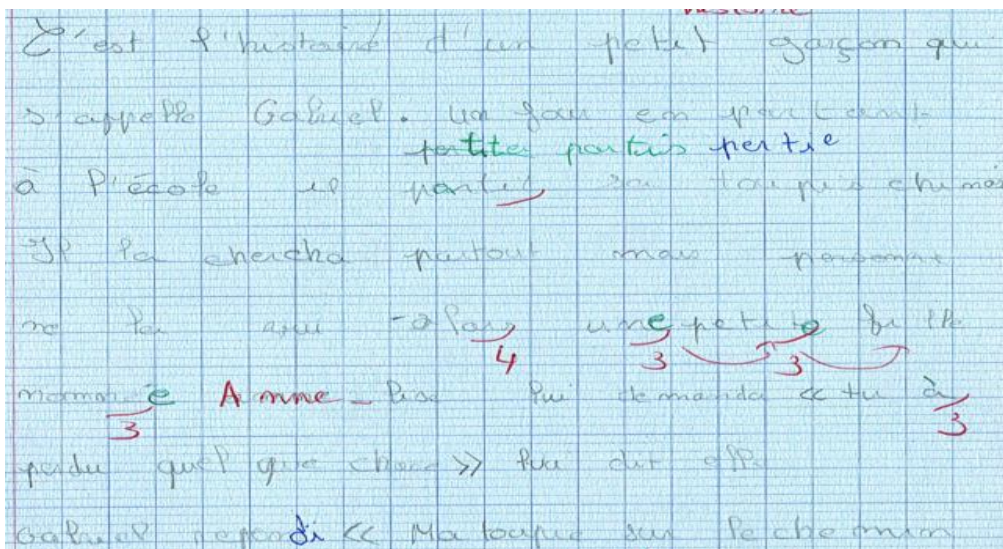 histoire
C'est l'histoire d'un petit garçon qui
s'appelle Gabriel. un jour en partant
pertites partais pertie
à l'école il sa toupis
Il la chercha partout mais personne
ne la alors une petite fille
4 3 3
nommé e Anne - lise lui demanda « tu à
3 3
perdu quel que chose » lui dit elle
Gabriel repondi « Ma toupie sur le chemin